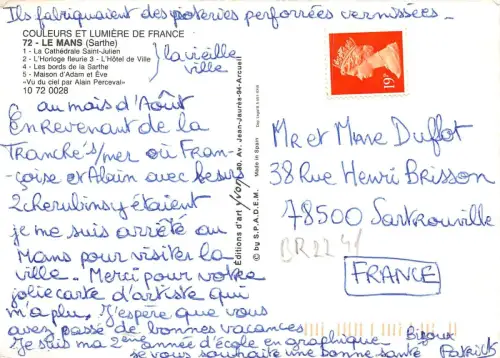 Ils fabriquaient des poteries perforrées vermissées_
COULEURS ET LUMIÈRE DE FRANCE
72 - LE MANS (Sarthe)
1 - La Cathédrale Saint-Julien
2 - L'Horloge fleurie 3 - L'Hôtel de Ville
4 - Les bords de la Sarthe
5 - Maison d'Adam et Ève
«Vu du ciel par Alain Perceval»
10 72 0028
} la vieille
ville
au mois d'Août
En revenant de la
Tranche s/mer où Fran-
çoise et Alain avec
2 étaient
je me suis arrêté au
Mans pour visiter la
ville.. Merci pour votre
jolie carte d'artiste qui
m'a plu. J'espère que vous
avez passé de bonnes vacances
Je suis ma 2ème année d'école en graphique
je vous souhaite une bonne santé
Bisoux
Patrick
Editions d'art yvon, Av. Jean-Jaurès-94-Arcueil
© by S.P.A.D.E.M.
Made in Spain
19P
Mr et Mme Duflot
38 Rue Henri Brisson
78500 Sartrouville
BR22 41
FRANCE